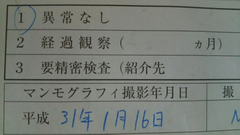 1 異常なし
2 経過観察( カ月)
3 要精密検査(紹介先
マンモグラフィ撮影年月日 撮
平成 31年1月16日